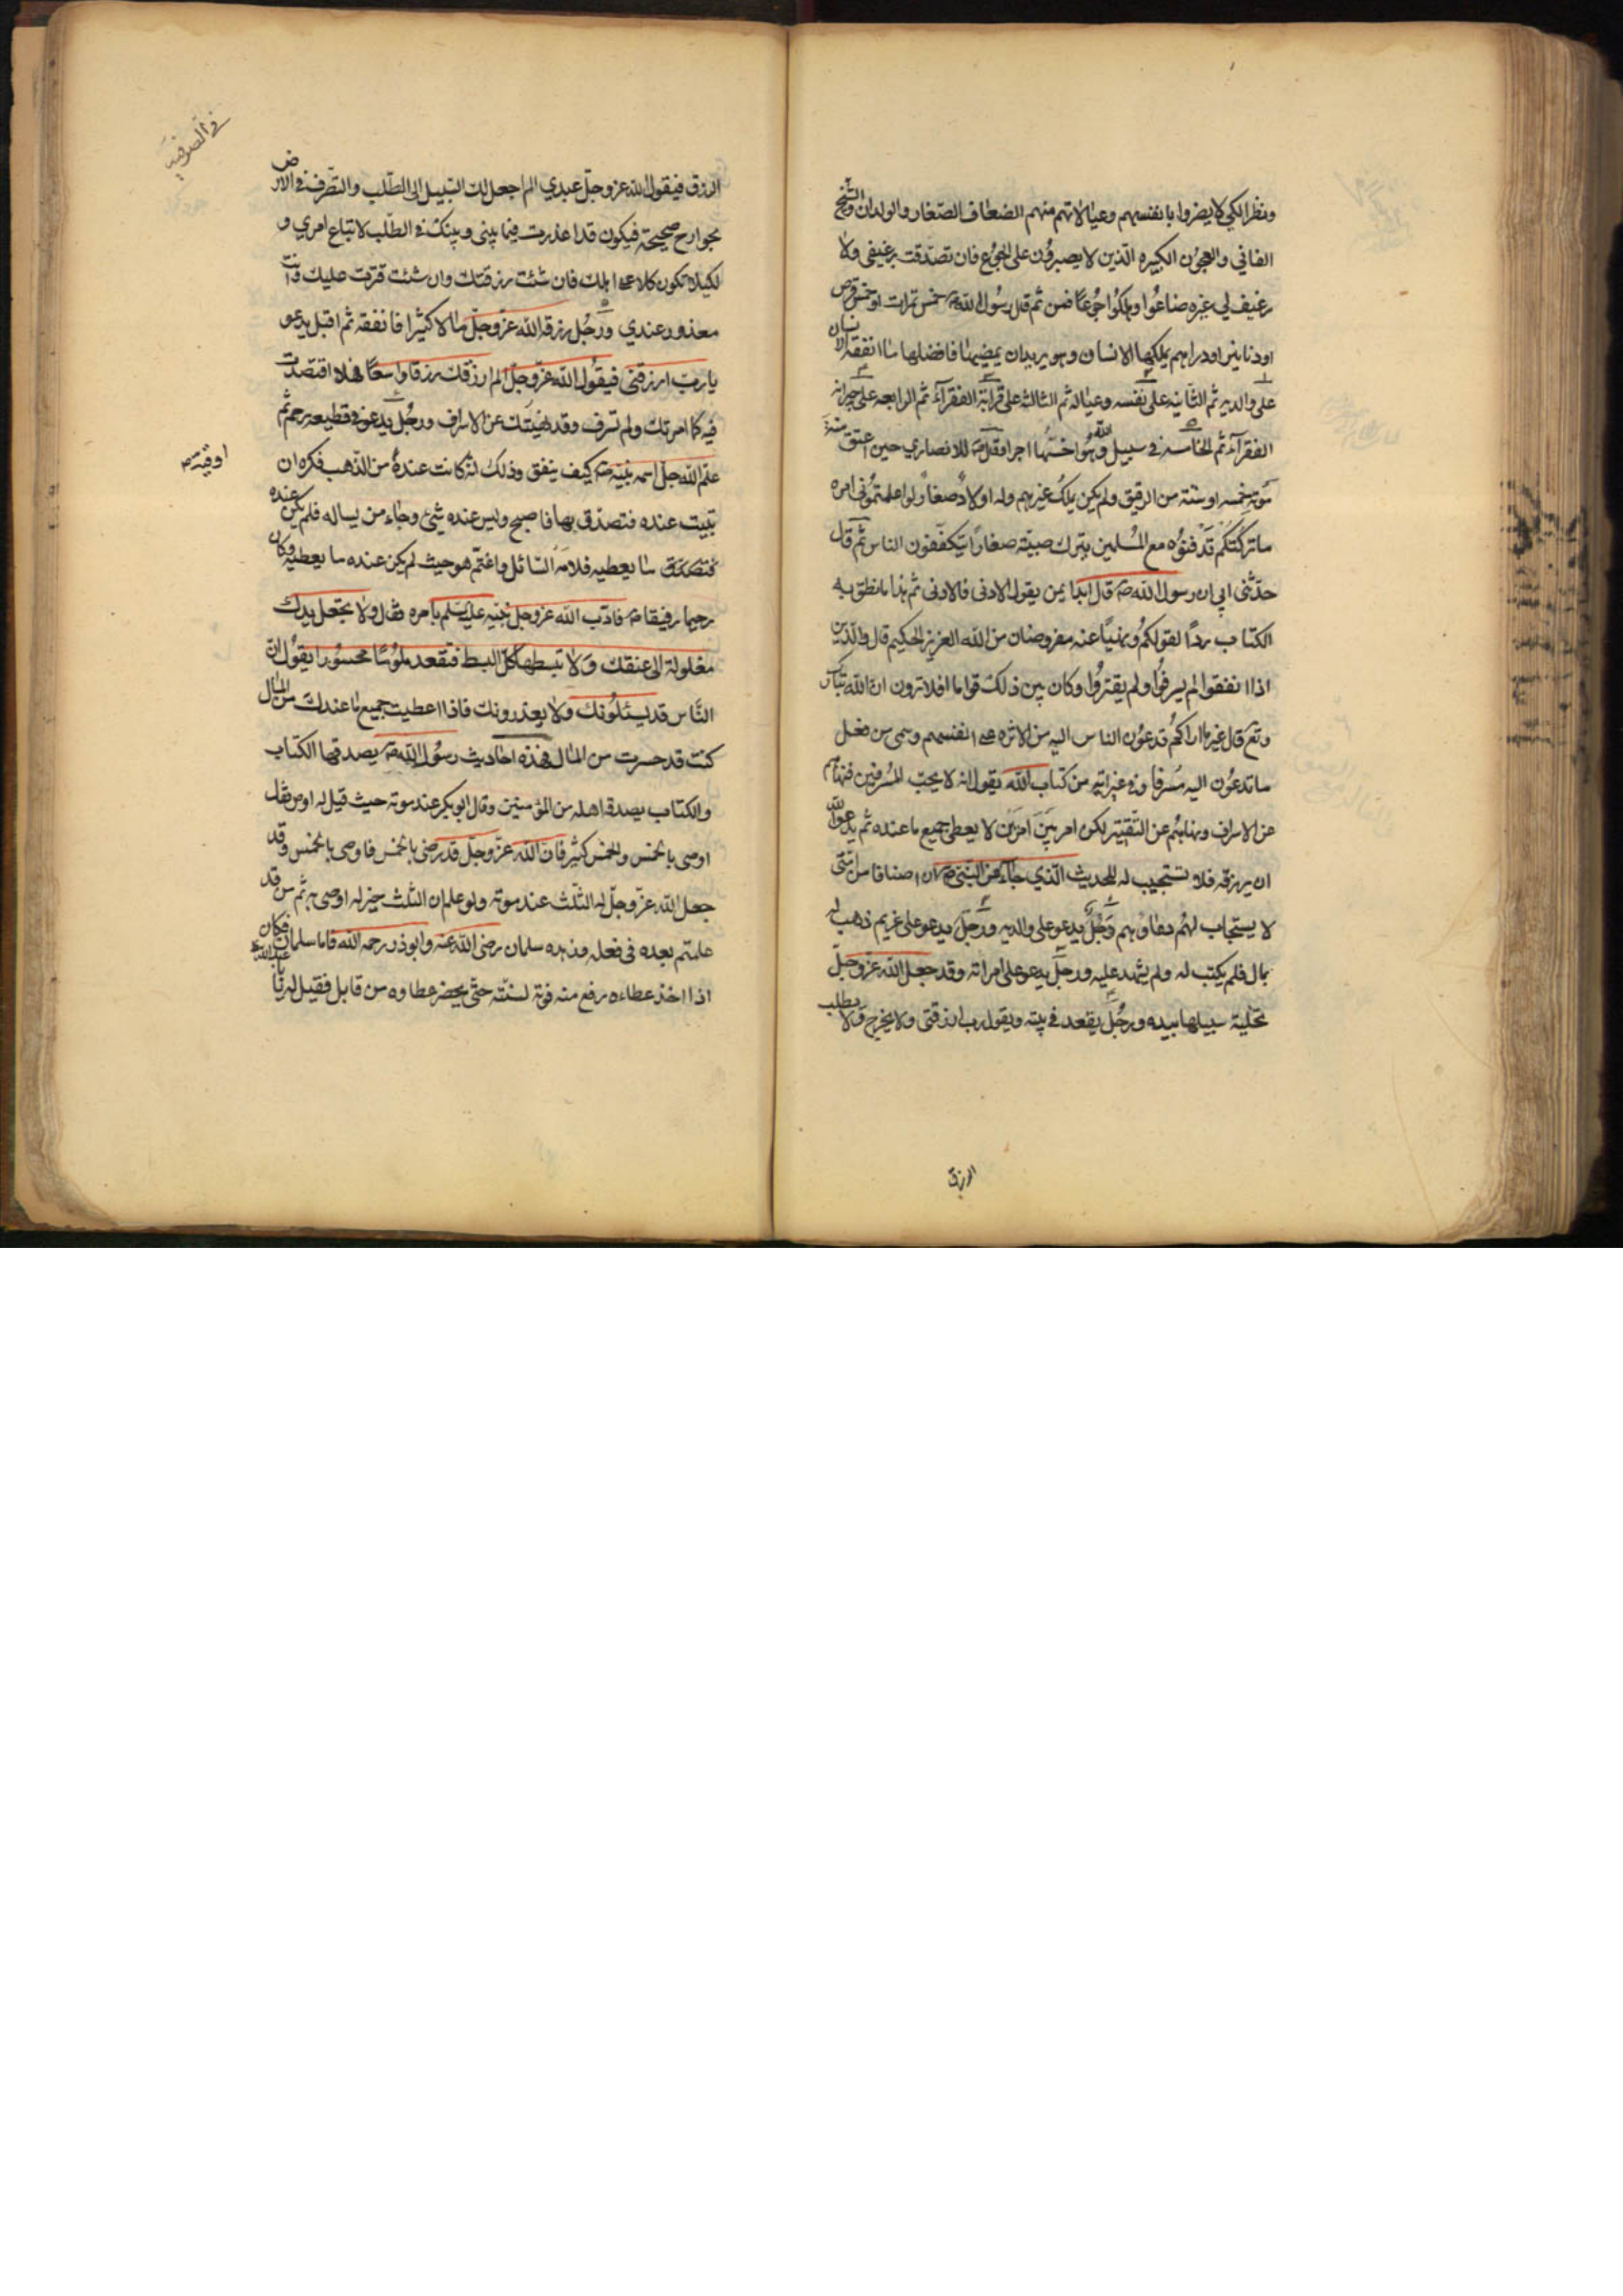 ونظرا لكي لا يضروا بانفسهم وعيالاتهم منهم الضعاف الصغار والولدان والشيخ
الفاني والعجوز الكبيره الذين لا يصبرون على الجوع فان تصدقت برغيفي ولا
رغيف لي غيره ضاعوا وهلكوا جوعا فمن ثم قال رسول الله ص خمس تمرات او خمس قرص
او دنانير او دراهم يملكها الانسان وهو يريد ان يمضيها فافضلها ما انفقه الانسان
على والديه ثم الثانيه على نفسه وعياله ثم الثالثه على قرابة الفقرآء ثم الرابعه على جيرانه
الفقرآء ثم الخامسه في سبيل الله وهو اخسها اجرا وقال ص للانصاري حين اعتق عند
موته خمسه او ستة من الرقيق ولم يكن يملك غيرهم وله اولاد صغار لو اعلمتموني امره
ما تركتكم تدفنوه مع المسلمين يترك صبية صغارا يتكففون الناس ثم قال
حدثني ابي ان رسول الله ص قال ابدا بمن يعول الادنى فالادنى ثم هذا ما نطق به
الكتاب ردا لقولكم ونهيا عنه مفروضا من الله العزيز الحكيم قال والذين
اذا انفقوا لم يسرفوا ولم يقتروا وكان بين ذلك قواما افلا ترون ان الله تبارك
وتع قال غير ما اراكم تدعون الناس اليه من الاثره على انفسهم وسمى من فعل
ما تدعون اليه مسرفا وفي غير اية من كتاب الله يقول انه لا يحب المسرفين فنهاهم
عن الاسراف ونهاهم عن التقتير لكن امر بين امرين لا يعطي جميع ما عنده ثم يدعو الله
ان يرزقه فلا تستجيب له للحديث الذي جاء عن النبي ص ان اصنافا من امتي
لا يستجاب لهم دعاؤهم رجل يدعو على والديه ورجل يدعو على غريم ذهب له
بمال فلم يكتب له ولم يشهد عليه ورجل يدعو على امراته وقد جعل الله عز وجل
تخلية سبيلها بيده ورجل يقعد في بيته ويقول رب ارزقني ولا يخرج ولا يطلب
الرزق
في الصوفيه
الرزق فيقول الله عز وجل عبدي الم اجعل لك السبيل الى الطلب والتصرف في الارض
بجوارح صحيحة فيكون قد اعذرت فيما بيني وبينك في الطلب لاتباع امري و
لكيلا تكون كلا على اهلك فان شئت رزقتك وان شئت قترت عليك وانت
معذور عندي ورجل رزقه الله عز وجل مالا كثيرا فانفقه ثم اقبل يدعو
يا رب ارزقني فيقول الله عز وجل الم ارزقك رزقا واسعا فهلا اقتصدت
فيه كما امرتك ولم تسرف وقد نهيتك عن الاسراف ورجل يدعو في قطيعه رحم ثم
علم الله جل اسمه نبيه ص كيف ينفق وذلك انه كانت عنده من الذهب فكره ان
اوقية ص
تبيت عنده فتصدق بها فاصبح وليس عنده شئ وجاء من يساله فلم يكن عنده
ما يعطيه فلامه السائل واغتم هو حيث لم يكن عنده ما يعطيه وكان
رحيما رفيقا ص فادب الله عز وجل نبيه عليه السلم بامره فقال ولا تجعل يدك
مغلولة الى عنقك ولا تبسطها كل البسط فتقعد ملوما محسورا يقول ان
الناس قد يسئلونك ولا يعذرونك فاذا اعطيت جميع ما عندك من المال
كنت قد حسرت من المال فهذه احاديث رسول الله ص يصدقها الكتاب
والكتاب يصدقه اهله من المؤمنين وقال ابو بكر عند موته حيث قيل له اوص فقال
اوصى بالخمس والخمس كثير فان الله عز وجل قد رضي بالخمس فاوصى بالخمس وقد
جعل الله عز وجل له الثلث عند موته ولو علم ان الثلث خير له اوصى به ثم من قد
علمتم بعده في فعله وزهده سلمان رضي الله عنه وابوذر رحمه الله فاما سلمان فكان
اذا اخذ عطاءه رفع منه قوته لسنته حتى يحضر عطاوه من قابل فقيل له يا ابا عبد الله